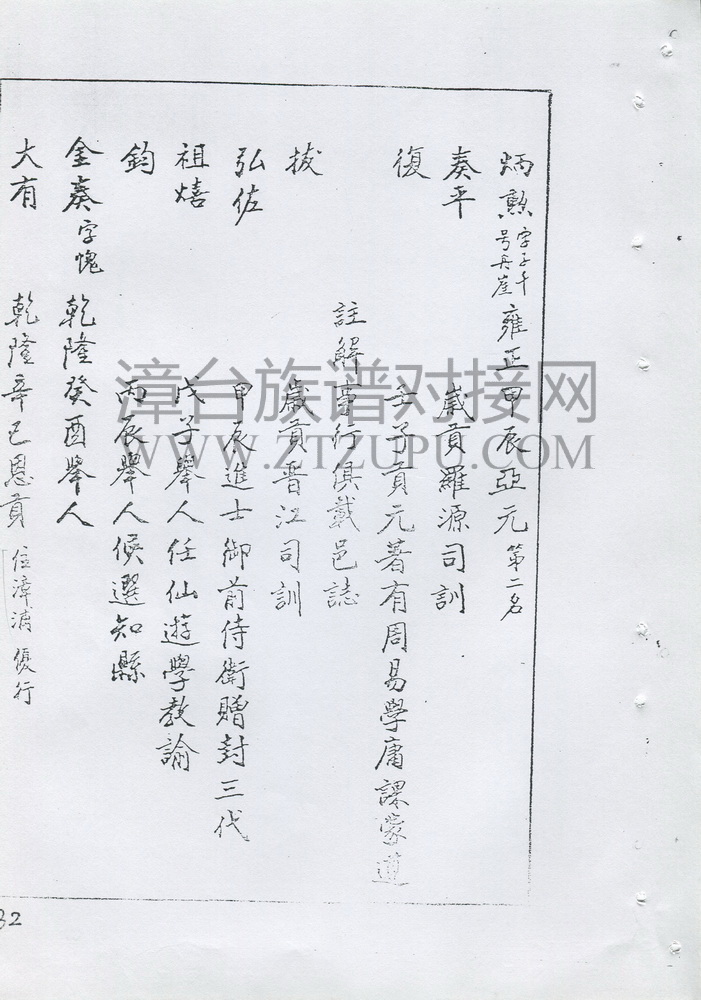 炳勲 字子千 号丹崖 雍正甲辰亞元 第二名
奏平 歲貢羅源司訓
復 壬子貢元著有周易學庸課蒙道
註解事行俱載邑誌
拔 歲貢晋江司訓
弘佐 甲辰進士御前侍衛贈封三代
祖熺 戊子舉人任仙遊學教諭
鈞 丙辰舉人候選知縣
金奏 字愧 乾隆癸酉舉人
大有 乾隆辛巳恩貢 住漳浦 優行
漳台族谱对接网
WWW.ZTZUPU.COM
32